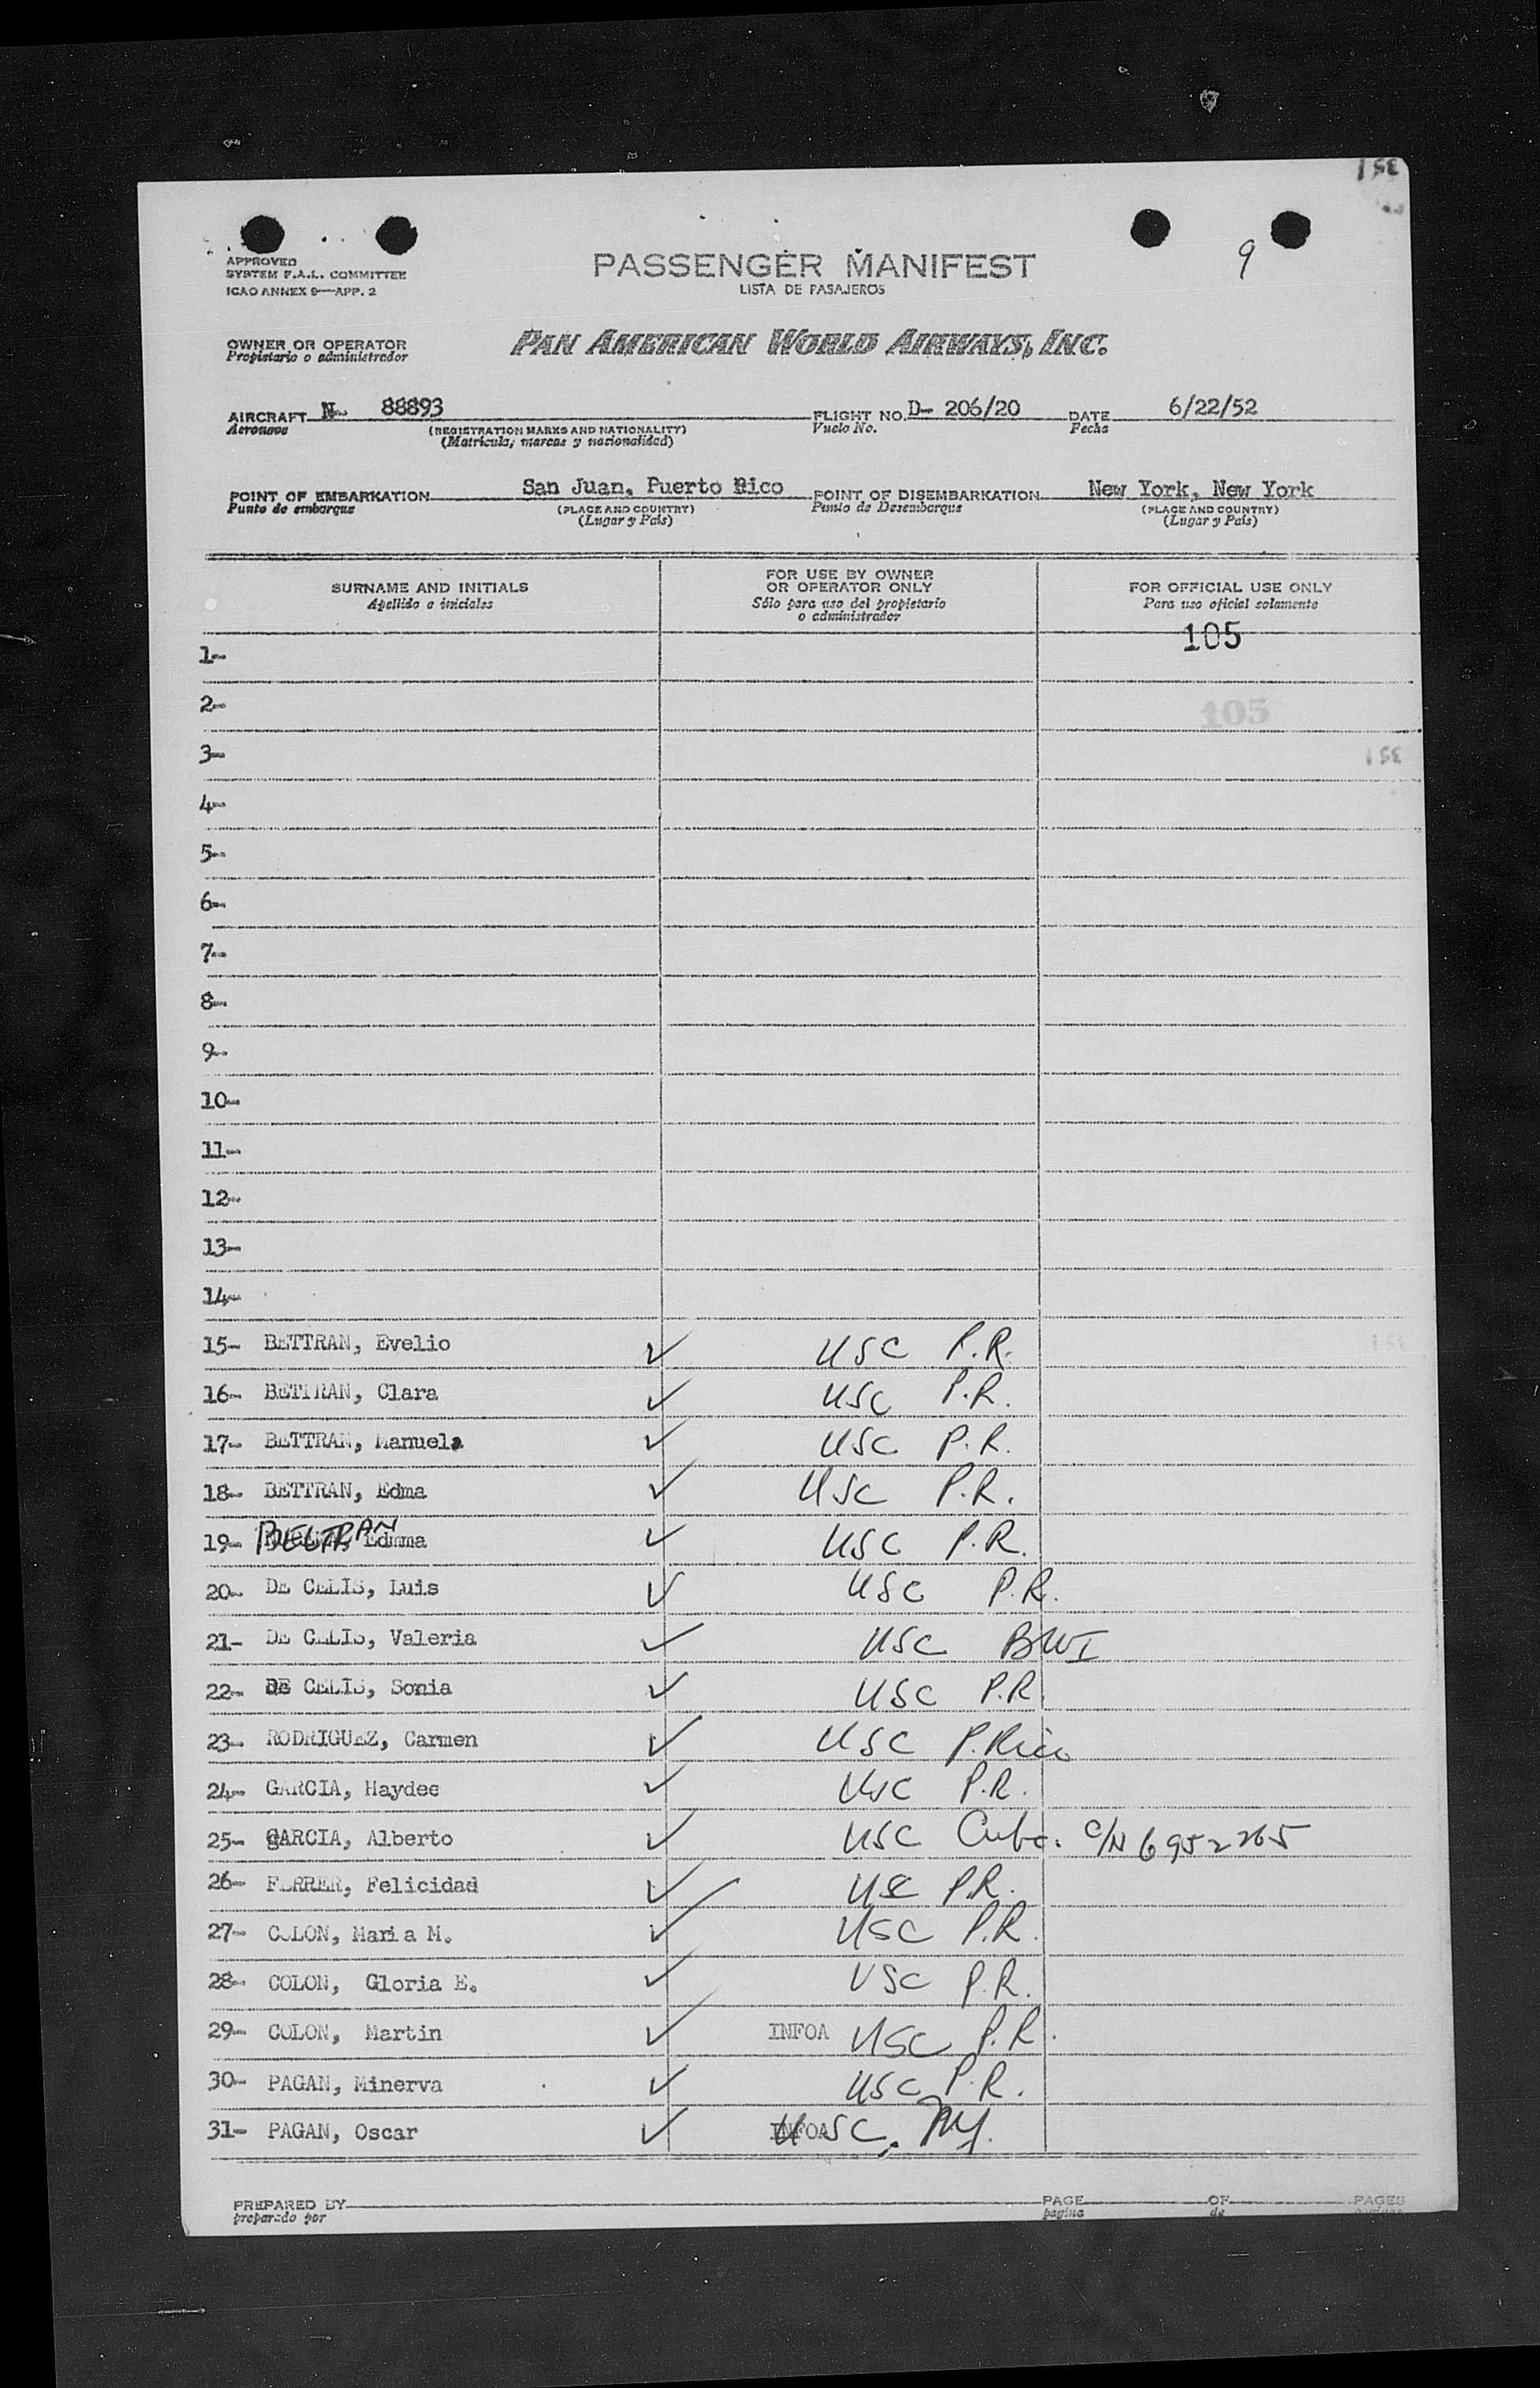 351
APPROVED
SYSTEM F.A.L. COMMITTEE
ICAO ANNEX 9—APP. 2
PASSENGER MANIFEST
LISTA DE PASAJEROS
9
OWNER OR OPERATOR
Propietario o administrador
PAN AMERICAN WORLD AIRWAYS, INC.
AIRCRAFT N- 88893 FLIGHT NO. D- 206/20 DATE 6/22/52
Aeronave (REGISTRATION MARKS AND NATIONALITY) Vuelo No. Fecha
(Matrícula, marcas y nacionalidad)
POINT OF EMBARKATION San Juan, Puerto Rico POINT OF DISEMBARKATION New York, New York
Punto de embarque (PLACE AND COUNTRY) Punto de Desembarque (PLACE AND COUNTRY)
(Lugar y País) (Lugar y País)
SURNAME AND INITIALS FOR USE BY OWNER OR OPERATOR ONLY FOR OFFICIAL USE ONLY
Apellido e iniciales Sólo para uso del propietario o administrador Para uso oficial solamente
105
1-
2- 105
3- 351
4-
5-
6-
7-
8-
9-
10-
11-
12-
13-
14-
15- BETTRAN, Evelio ✓ USC P.R. 351
16- BETTRAN, Clara ✓ USC P.R.
17- BETTRAN, Manuela ✓ USC P.R.
18- BETTRAN, Edma ✓ USC P.R.
19- BELTRAN, Edmma ✓ USC P.R.
20- DE CELIS, Luis ✓ USC P.R.
21- DE CELIS, Valeria ✓ USC BWI
22- DE CELIS, Sonia ✓ USC P.R.
23- RODRIGUEZ, Carmen ✓ USC P.Rico
24- GARCIA, Haydee ✓ USC P.R.
25- GARCIA, Alberto ✓ USC Cuba. C/N 6952265
26- FERRER, Felicidad ✓ USC P.R.
27- COLON, Maria M. ✓ USC P.R.
28- COLON, Gloria E. ✓ USC P.R.
29- COLON, Martin ✓ INFOA USC P.R.
30- PAGAN, Minerva ✓ USC P.R.
31- PAGAN, Oscar ✓ INFOA USC. NY.
PREPARED BY PAGE OF PAGES
preparado por pagina de paginas